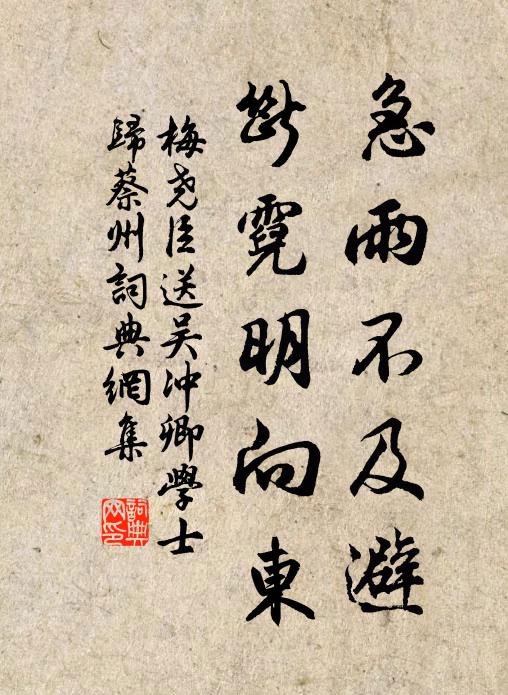 急雨不及避
斷霓明向東
梅堯臣送吳沖卿學士
歸蔡州詞典網集
詞典
网印